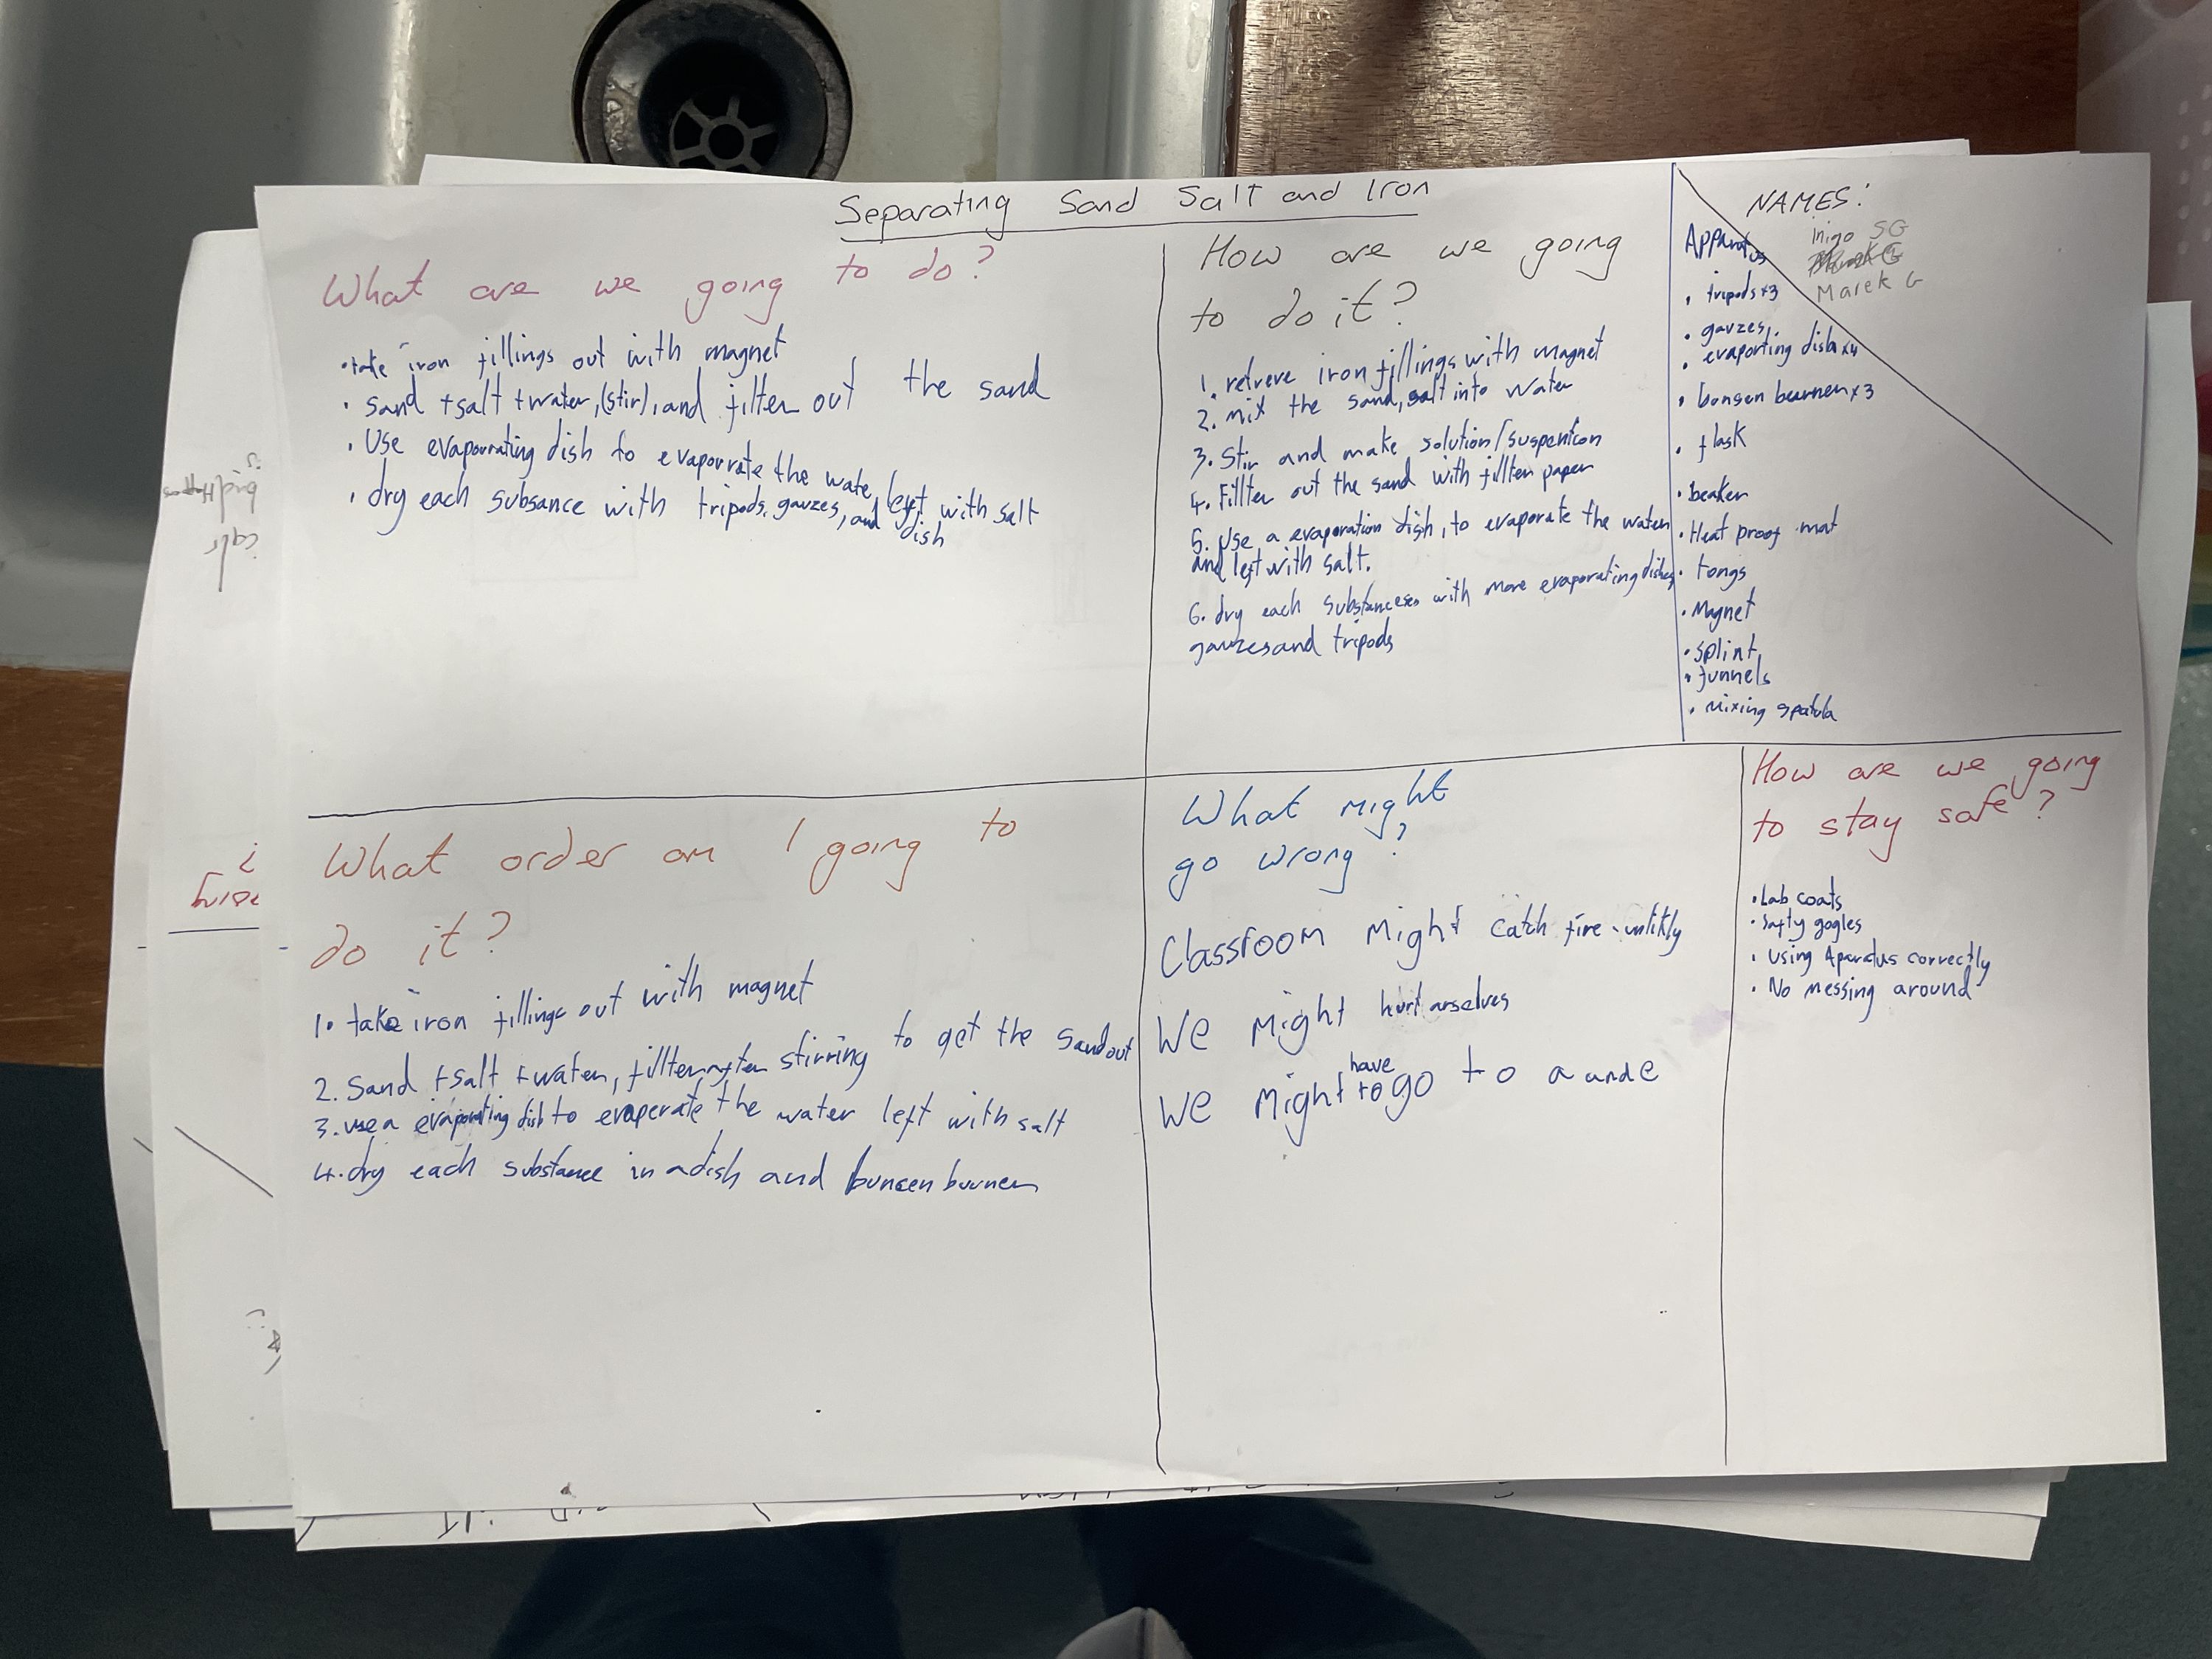 Separating Sand Salt and Iron
What are we going to do?
• take iron fillings out with magnet
• sand + salt + water, (stir), and filter out the sand
• Use evapourating dish to evapourate the water, left with salt
• dry each subsance with tripods, gauzes, and dish
How are we going
to do it?
1. retreve iron fillings with magnet
2. mix the sand, salt into water
3. Stir and make solution/suspention
4. Fillter out the sand with fillter paper
5. Use a evaporation dish, to evaporate the water
and left with salt.
6. dry each substanceses with more evaporating dishes
gauzes and tripods
NAMES:
Inigo SG
Marek G
Apparatus
• tripods x3
• gauzes
• evaporting dish x4
• bonsen beurner x3
• flask
• beaker
• Heat proof mat
• tongs
• Magnet
• splint
• funnels
• mixing spatula
What order am I going to
do it?
1. take iron fillings out with magnet
2. Sand + salt + water, fillter after stirring to get the sand out
3. use a evaporating dish to evaperate the water left with salt
4. dry each substance in a dish and buncen burner
What might
go wrong?
Classroom might catch fire - unlikly
We might hurt arselves
We might have to go to a and e
How are we going
to stay safe?
• Lab coats
• Safty gogles
• Using Aparatus correctly
• No messing around